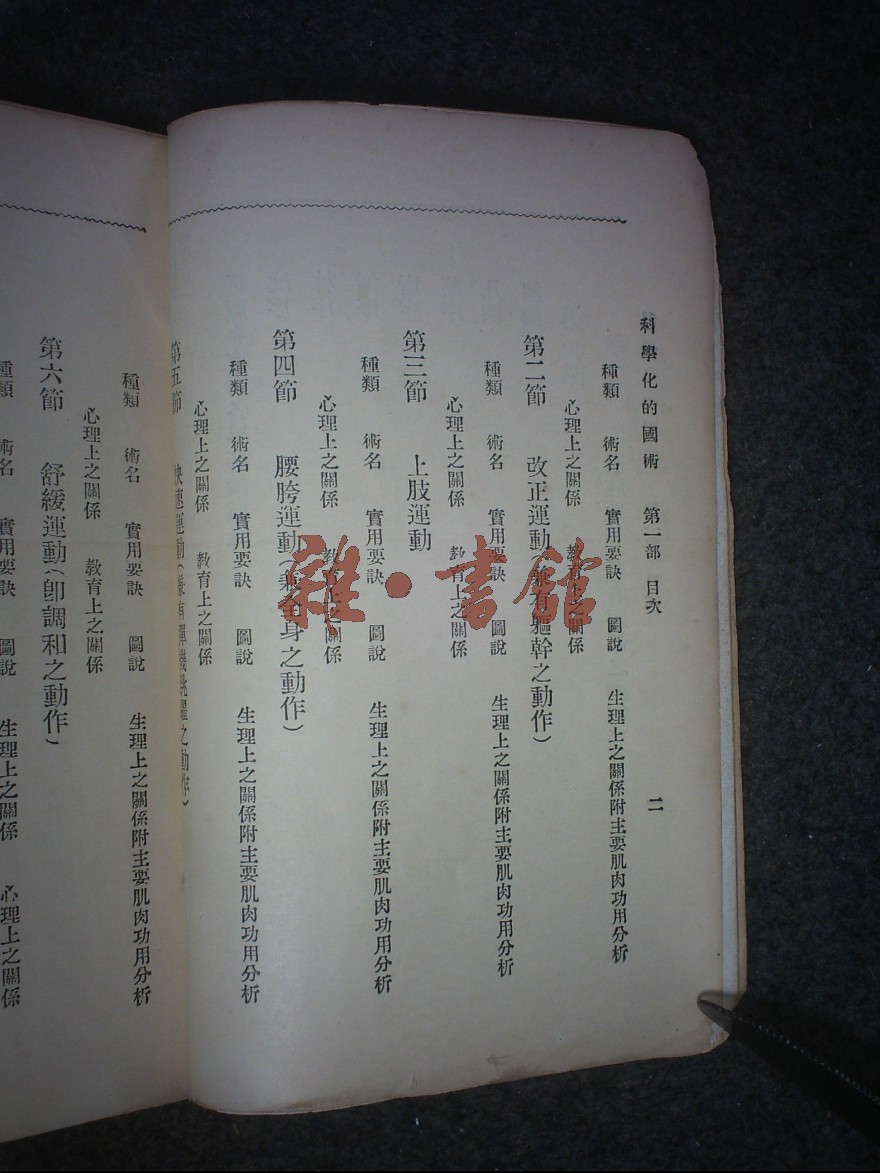 科學化的國術 第一部 目次 二
種類 術名 實用要訣 圖說 生理上之關係附主要肌肉功用分析
心理上之關係 教育上之關係
第二節 改正運動(兼有軀幹之動作)
種類 術名 實用要訣 圖說 生理上之關係附主要肌肉功用分析
心理上之關係 教育上之關係
第三節 上肢運動
種類 術名 實用要訣 圖說 生理上之關係附主要肌肉功用分析
心理上之關係 教育上之關係
第四節 腰胯運動(兼全身之動作)
種類 術名 實用要訣 圖說 生理上之關係附主要肌肉功用分析
心理上之關係 教育上之關係
第五節 快速運動(兼有彈機跳躍之動作)
種類 術名 實用要訣 圖說 生理上之關係附主要肌肉功用分析
心理上之關係 教育上之關係
第六節 舒緩運動(卽調和之動作)
種類 術名 實用要訣 圖說 生理上之關係 心理上之關係
雜·書館